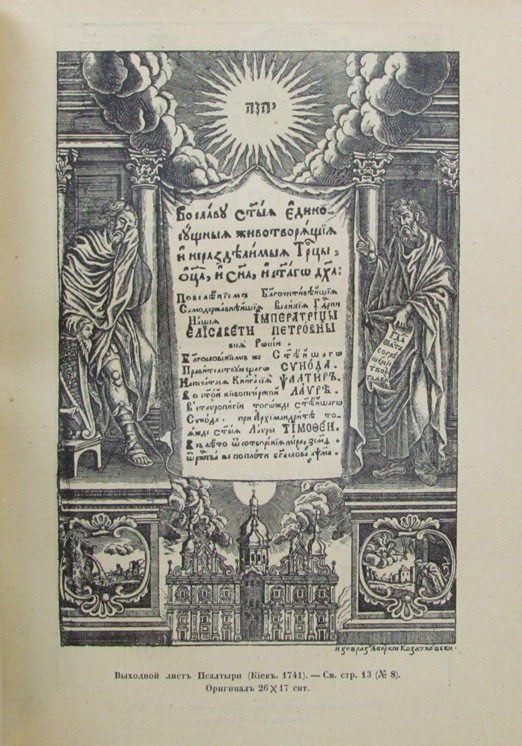 יהוה
Во славу стыѧ Єдино-
сущныѧ животворѧщіѧ
И нераздѣлимыѧ Трцы,
Оца, и Сна, и стагѡ Дха:
Повелѣніемъ Благочтивѣйшіѧ
Самодержавнѣйшіѧ Великіѧ Гдрни
Нашеѧ ІМПЕРАТРІЦЫ
ЕЛІСАВЕТИ ПЕТРОВНЫ
всеѧ Россіи.
Благословеніемъ же Стѣйшагѡ
Правителствующагѡ СУНОДА.
Напечатасѧ Книга сіѧ ѰАЛТИРЬ.
Во стой кіевопечерской ЛАУРѢ.
Въ ставропигіи тогѡжде стѣйшагѡ
Сунода. при Архімандритѣ то-
ѧжде стыѧ Лауры ТІМОѲЕИ.
Въ лѣто ѿ сотворенія міра,
ѿ ржтва же по плоти Бга слова ҂аѱма.
Изобраз: Аверкіи Козачковски.
Выходной листъ Псалтыри (Кіевъ. 1741). — См. стр. 13 (№ 8).
Оригиналъ 26×17 снт.